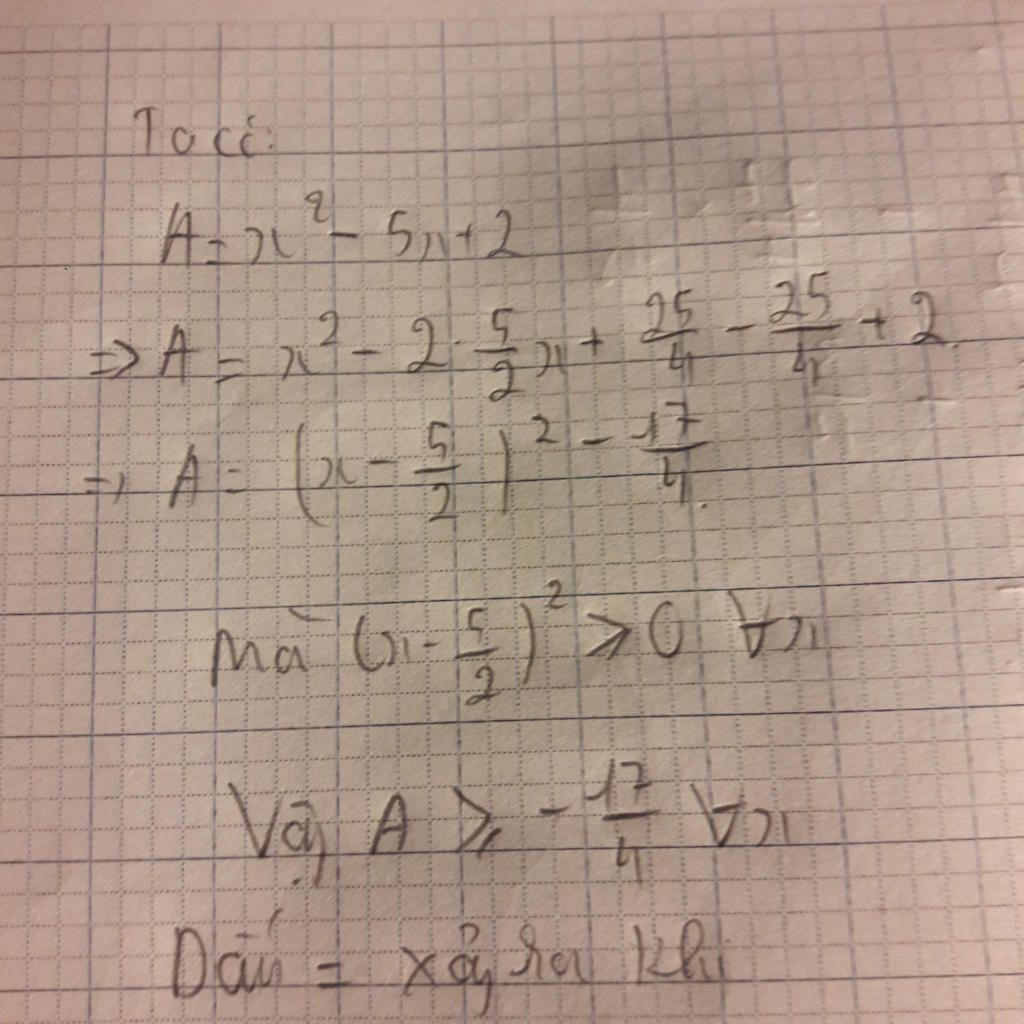 Ta có:
A = x² - 5x + 2
=> A = x² - 2 . 5/2 x + 25/4 - 25/4 + 2
=> A = (x - 5/2)² - 17/4
Mà (x - 5/2)² ⩾ 0 ∀x
Vậy A ⩾ - 17/4 ∀x
Dấu = xảy ra khi